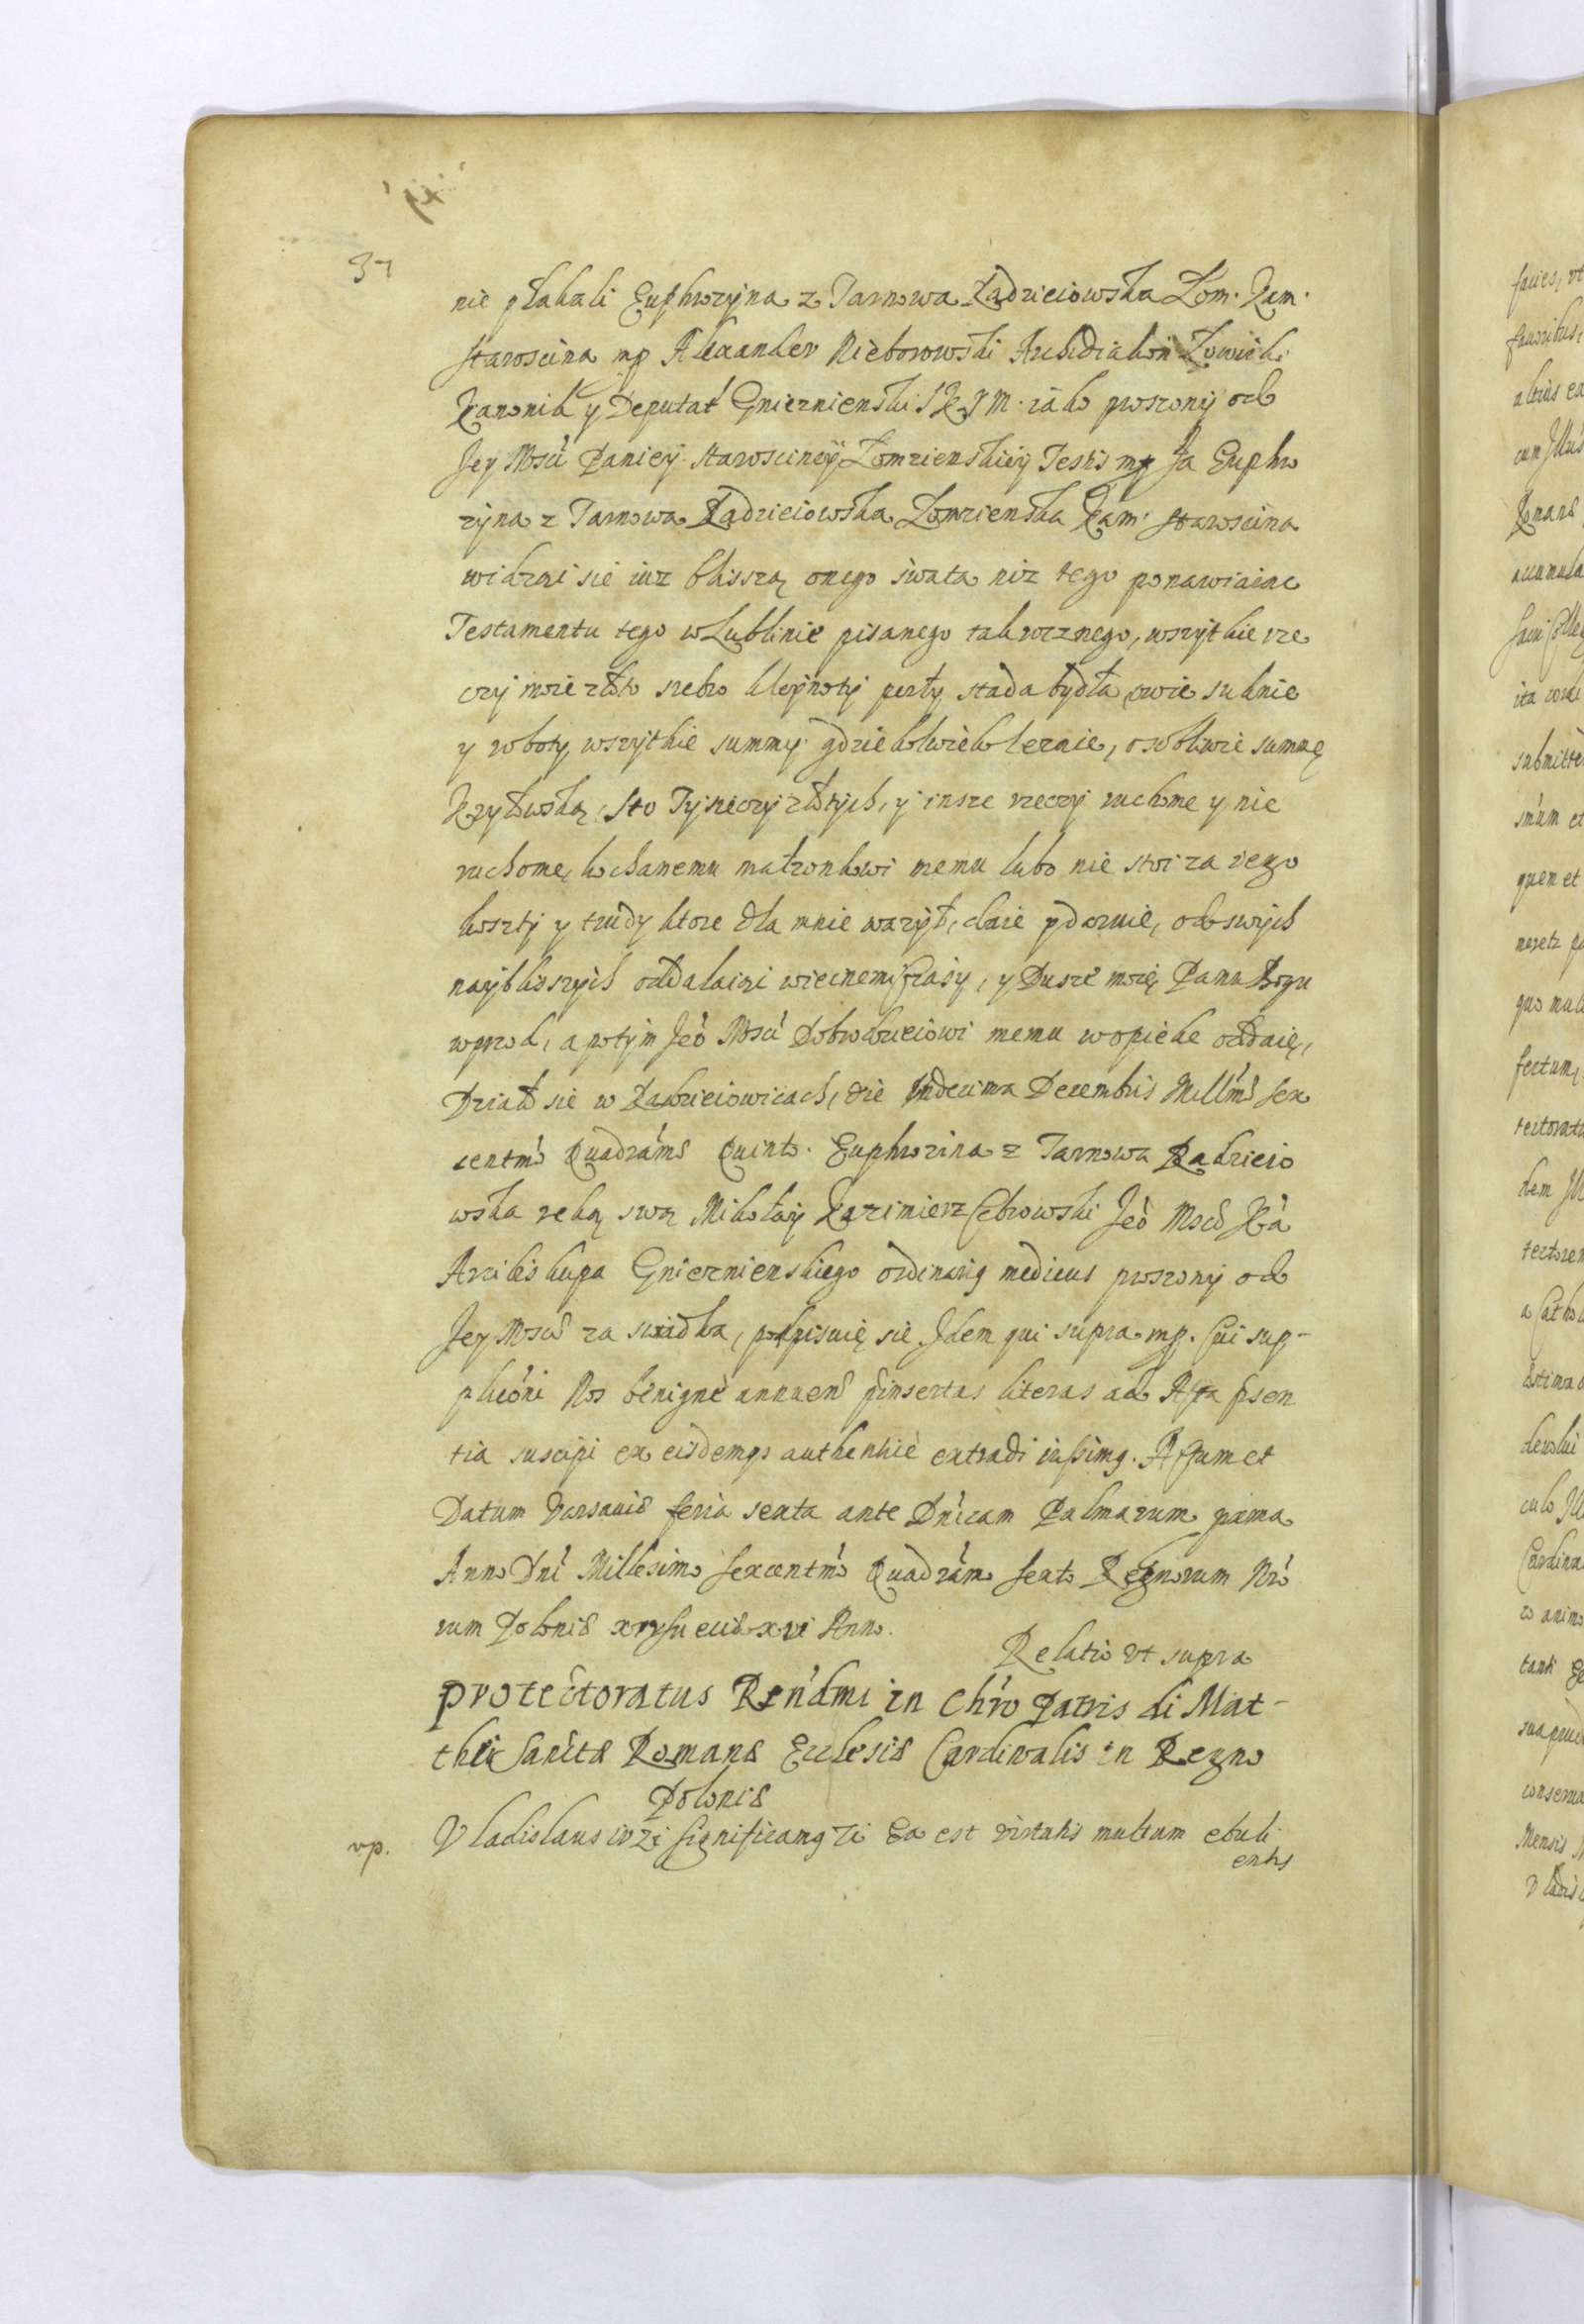 37
nie płakali Euphrozyna z Tarnowa Radzieiowska Łom. Kam.
starościna mp Alexander Nieborowski Archidiakon Łowicki
Kanonik y Deputat Gnieznienski S K J M. iako proszony od
Jey Mści Paniey Starosciney Łomzienskiey Testis mp Ja Euphro
zyna z Tarnowa Radzieiowska Łomzienska Kam. starościna
widząi się iuz blisszą onego świata niz tego ponawiaiac
Testamentu tego w Lublinie pisanego tak rocznego, wszytkie rze
czy moie złoto srebro kleynoty perły stada bydła owce suknie
y roboty wszytkie summy gdziekolwiek lezaie, osobliwie summę
Kryłowską, Sto Tysieczy złotych, y insze rzeczy ruchome y nie
ruchome, kochanemu małzonkowi memu lubo nie stoi za iego
koszty y trudy ktore dla mnie wazył, daie y daruie, od swych
nayblizszych oddalaiąi wiecznemi czasy, y Dusze moię Panu Bogu
wprzod, a potym Jeo Mści Dobrodzieiowi memu w opieke oddaię,
Działo sie w Radzieiowicach, die Vndecima Decembris Millmo sex
centmo Quadrams Quinto. Euphrozina z Tarnowa Radzieio
wska ręką swą Mikołay Kazimierz Cebrowski Jeo Mści Xa
Arcibiskupa Gnieznienskiego ordinariq medicus proszony od
Jey Mści za swiadka, podpisuię się Idem qui supra mp. Cui sup-
plicóni Nos benignè annuen pinsertas literas ad Acta psen
tia suscipi ex eisdemqs authentiè extradi iussimq. Actum et
Datum Varsauiæ feria sexta ante Dnicam Palmarum proxima
Anno Dni Millesimo sexcentmo Quadramo sexto Regnorum Nro
rum Poloniæ xiv Sueciæ xvi Anno.
Relatio vt supra
Protectoratus Rendmi in Chro Patris di Mat-
thei Sanctæ Romanæ Ecclesiæ Cardinalis in Regno
Poloniæ
vp. Vladislaus ivzi Significamq zi Ea est virtutis multum ebuli
entis